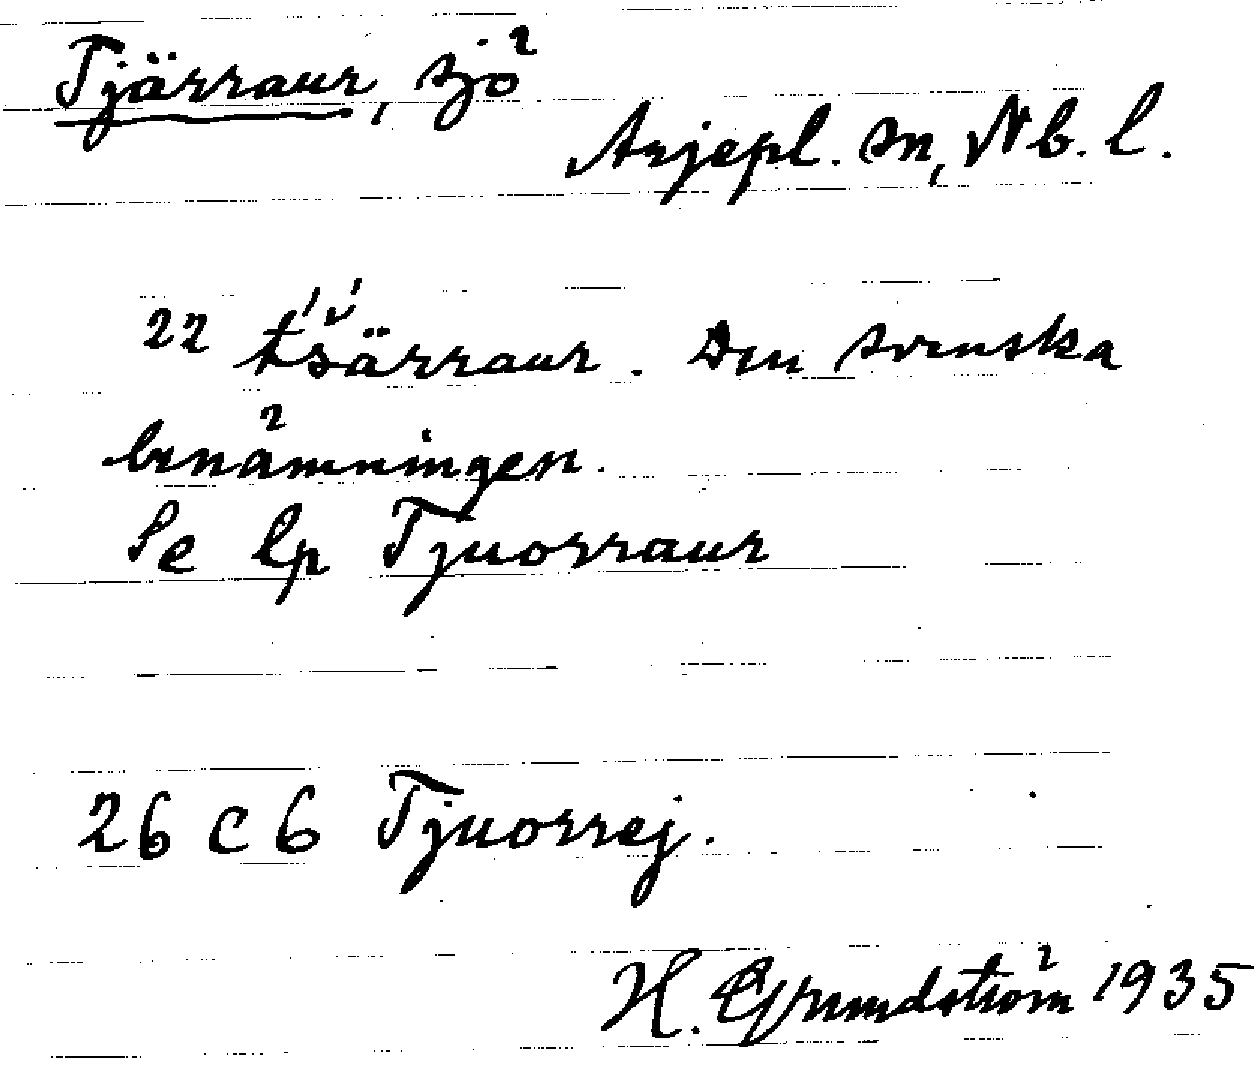 Tjärraur, sjö
Arjepl. sn, Nb. l.
22 tsärraur. Den svenska
benämningen.
Se lp Tjuorraur
26 C 6 Tjuorrej.
H. Grundström 1935